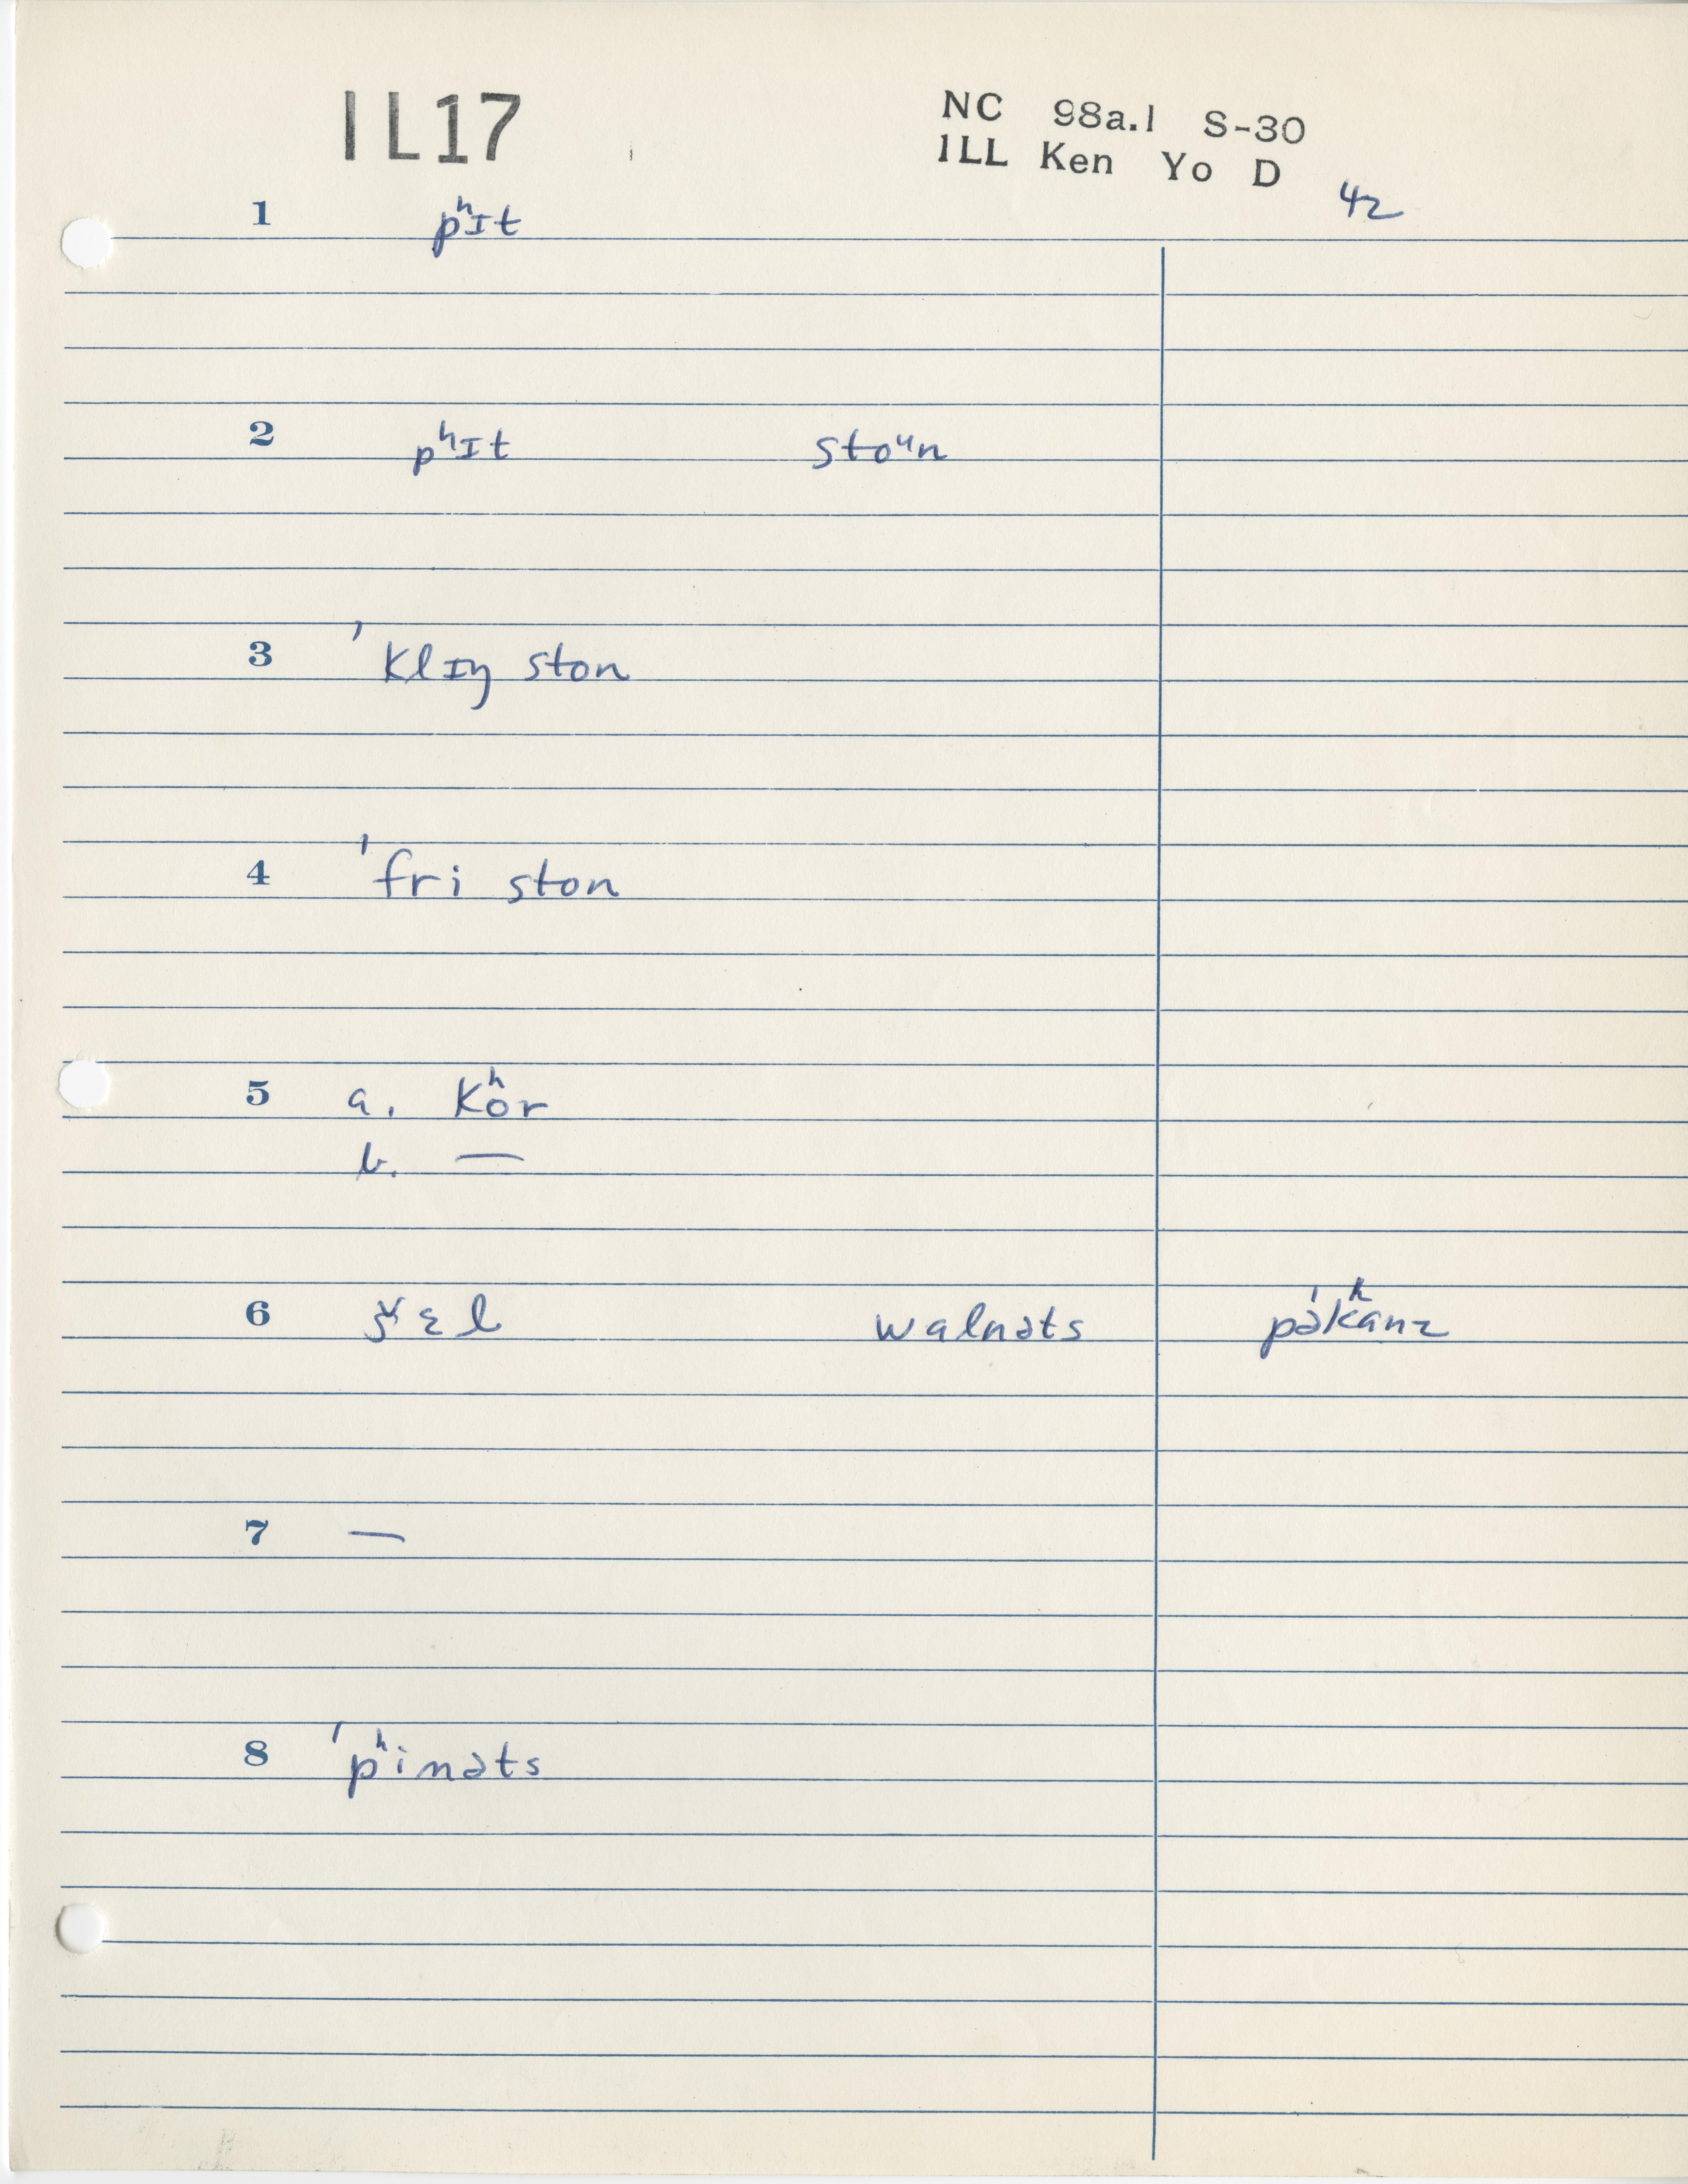 IL17
NC 98a.1 S-30
ILL Ken Yo D
42
1 pʰɪt
2 pʰɪt stoᵘn
3 ˈklɪŋ ston
4 ˈfri ston
5 a. kʰor
b. —
6 š̌ɛl walnəts pəˈkʰanz
7 —
8 ˈpʰinəts